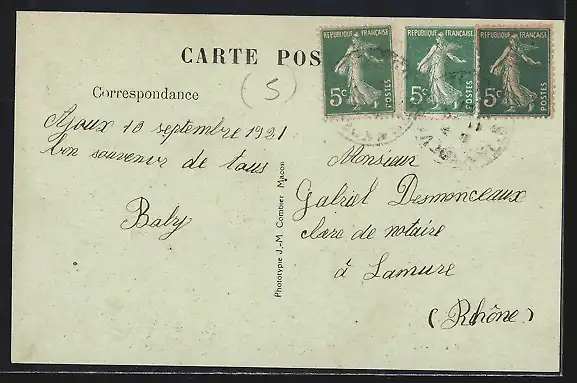 CARTE POS
(S)
Correspondance
RÉPUBLIQUE FRANÇAISE
5c POSTES
RÉPUBLIQUE FRANÇAISE
5c POSTES
RÉPUBLIQUE FRANÇAISE
5c POSTES
Ajoux 18 septembre 1921
bon souvenir de tous
Baby
Phototypie J.-M. Combier Macon
Monsieur
Gabriel Desmonceaux
clerc de notaire
à Lamure
(Rhône)